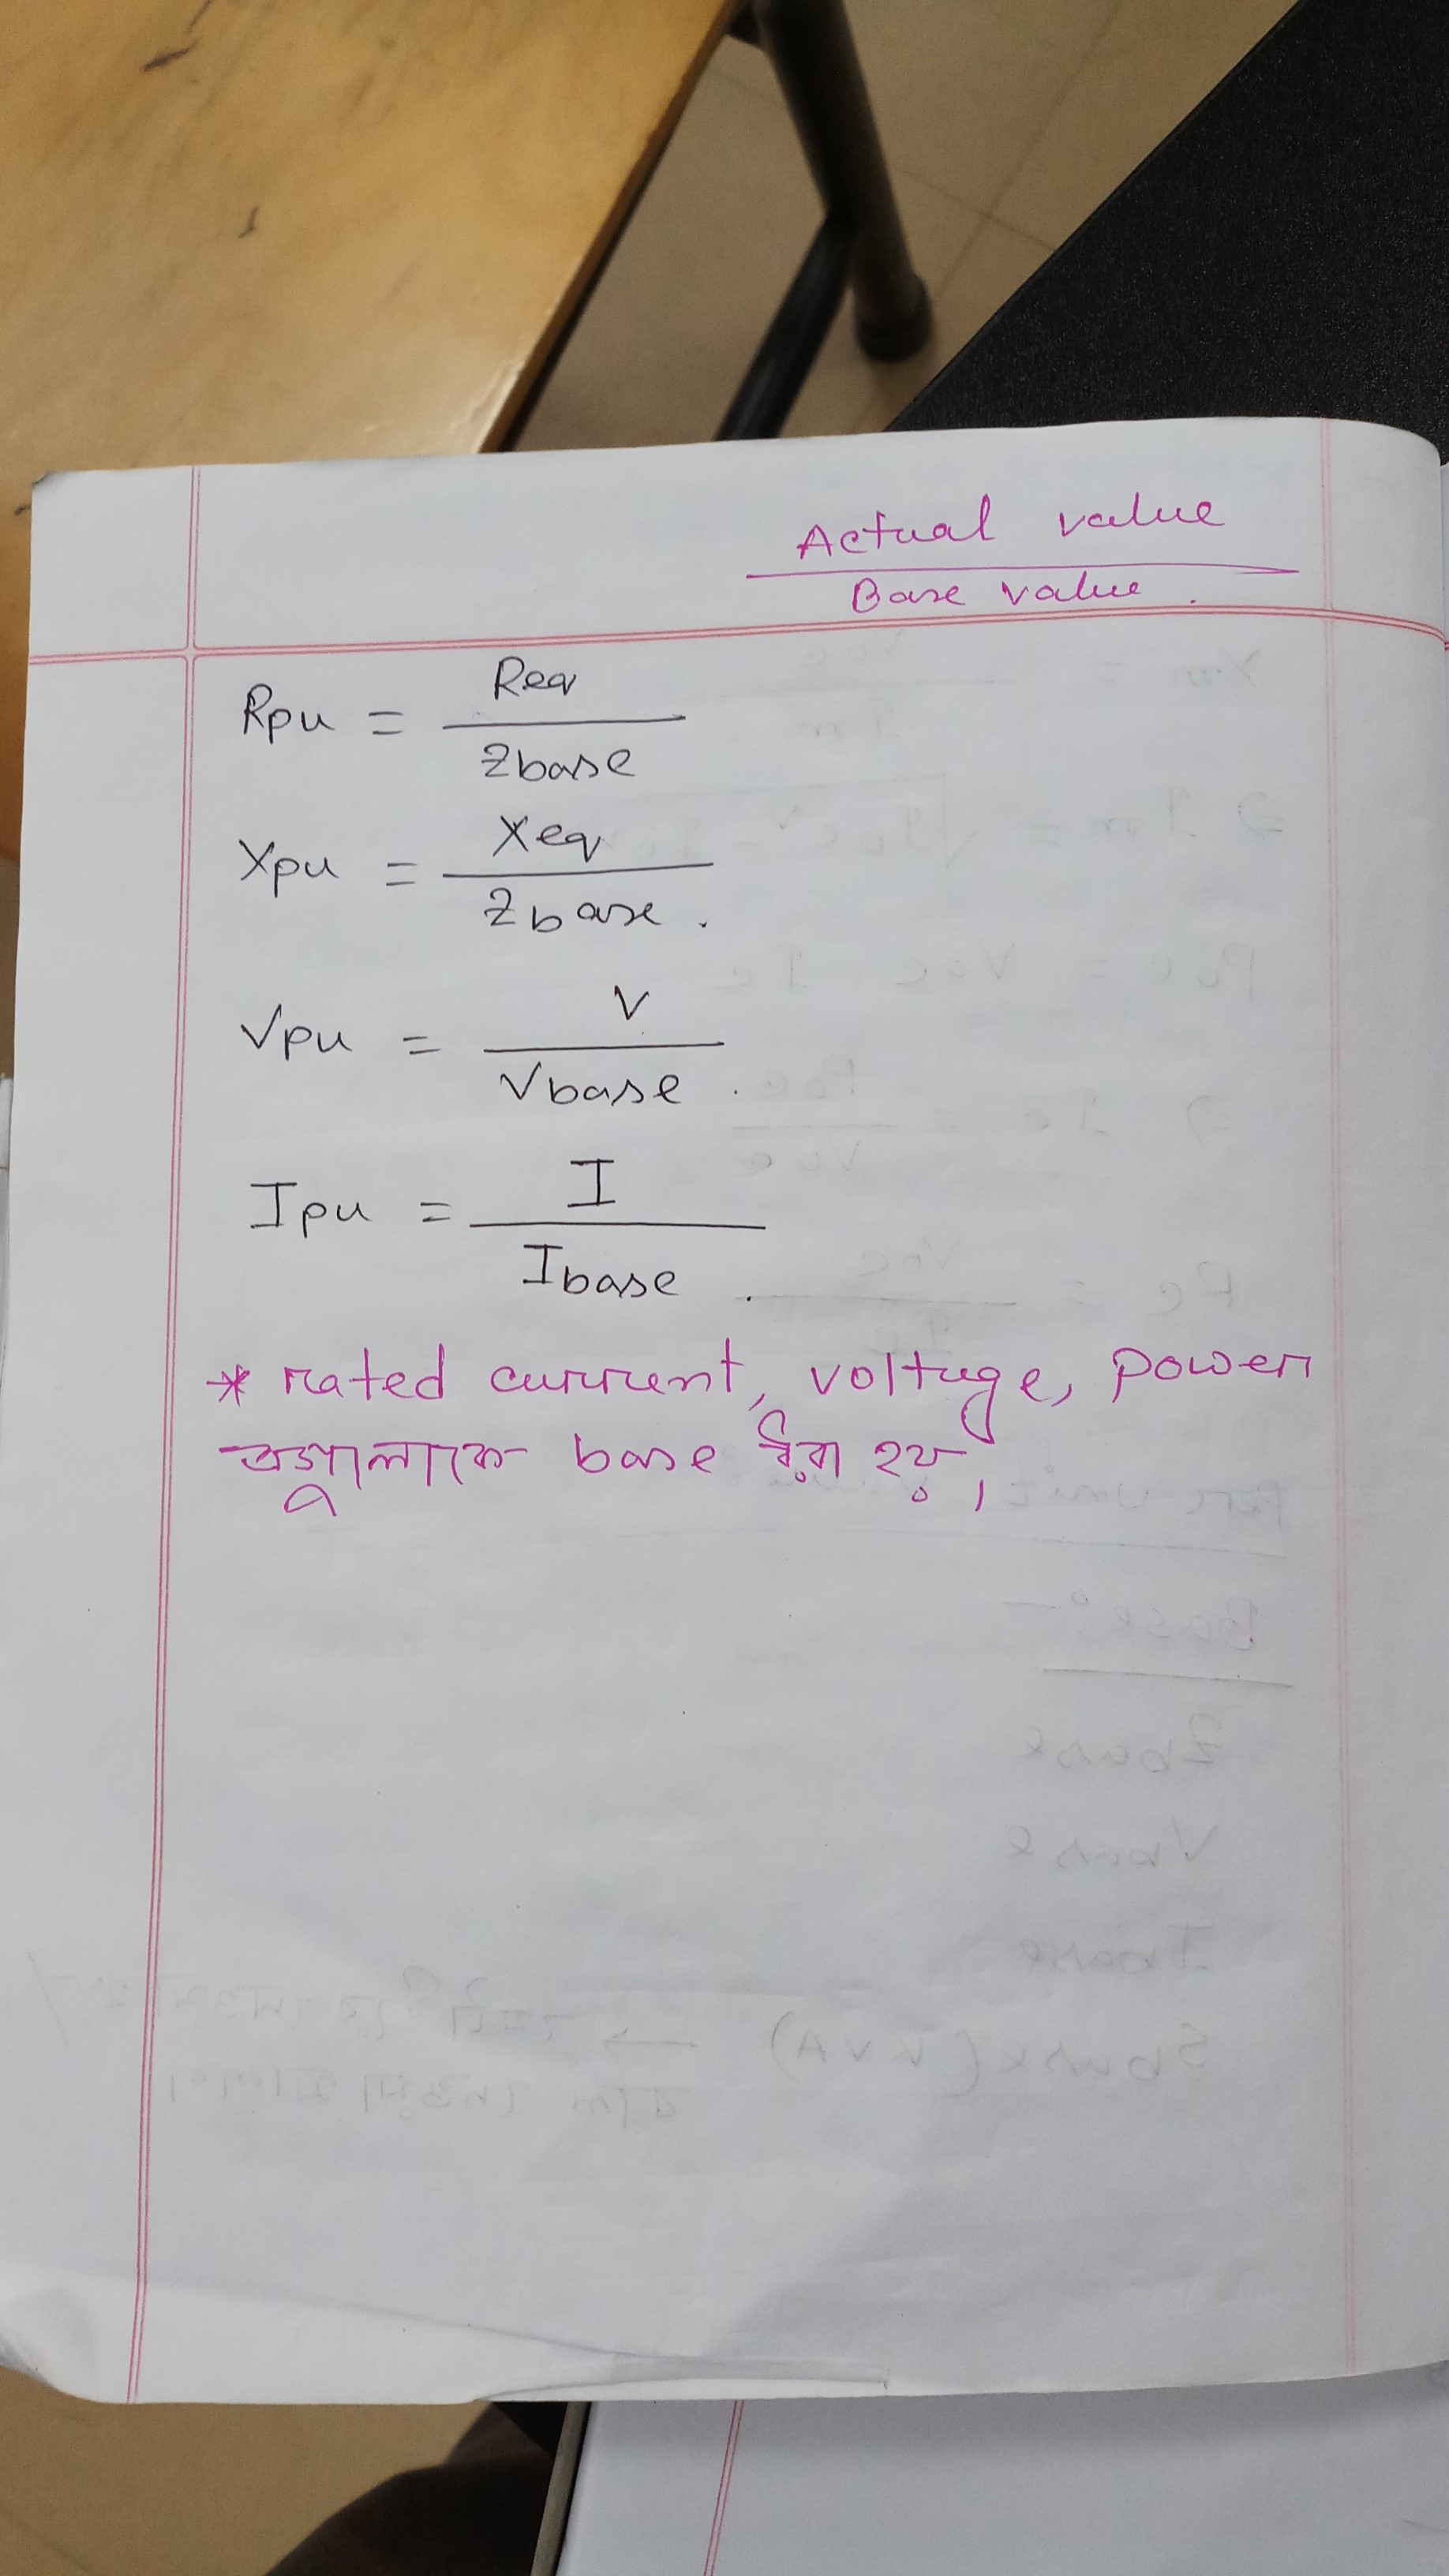 Actual value
Base value.
Rpu = Req
Zbase
Xpu = Xeq
Zbase.
Vpu = V
Vbase.
Ipu = I
Ibase.
* rated current, voltage, power
base ধরা হয়।